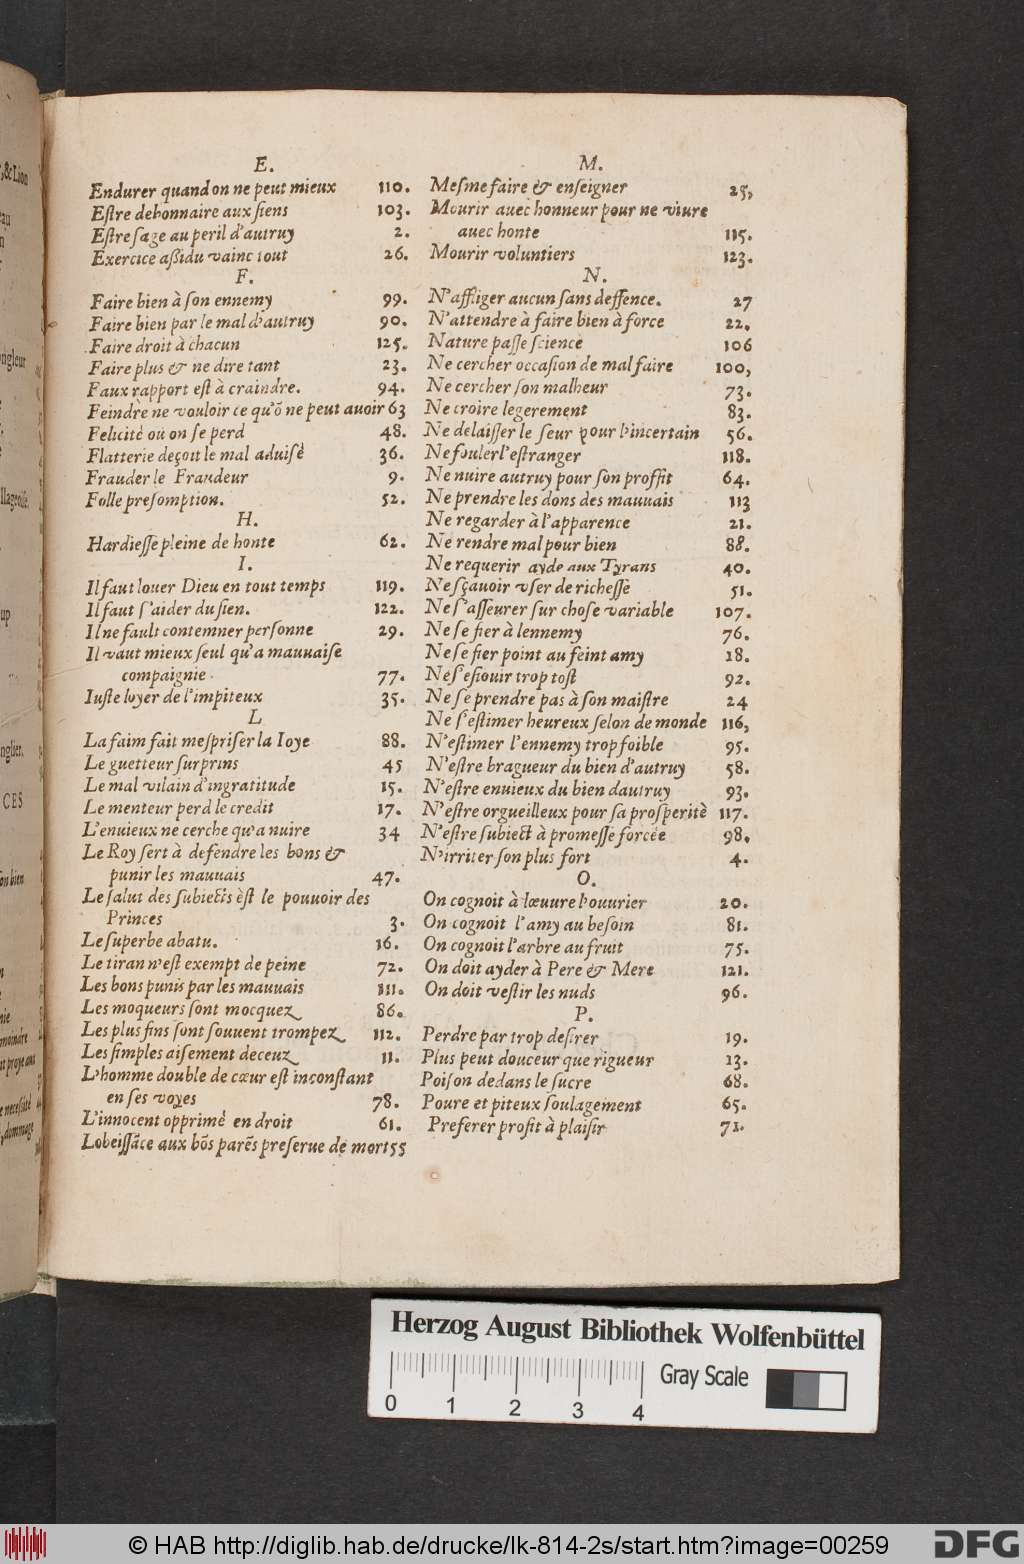 E.
Endurer quand on ne peut mieux 110.
Eſtre debonnaire aux ſiens 103.
Eſtre ſage au peril d'autruy 2.
Exercice aßidu vainc tout 26.
F.
Faire bien à ſon ennemy 99.
Faire bien par le mal d'autruy 90.
Faire droit à chacun 125.
Faire plus & ne dire tant 23.
Faux rapport eſt à craindre. 94.
Feindre ne vouloir ce qu'ō ne peut auoir 63
Felicité ou on ſe perd 48.
Flatterie deçoit le mal aduisé 36.
Frauder le Fraudeur 9.
Folle preſomption. 52.
H.
Hardieſſe pleine de honte 62.
I.
Il faut louer Dieu en tout temps 119.
Il faut s'aider du ſien. 122.
Il ne fault contemner perſonne 29.
Il vaut mieux ſeul qu'a mauuaiſe
compaignie. 77.
Iuſte loyer de l'impiteux 35.
L
La faim fait meſpriſer la Ioye 88.
Le guetteur ſurprins 45
Le mal vilain d'ingratitude 15.
Le menteur perd le credit 17.
L'enuieux ne cerche qu'a nuire 34
Le Roy ſert à defendre les bons &
punir les mauuais 47.
Le ſalut des ſubiects èſt le pouuoir des
Princes 3.
Le ſuperbe abatu. 16.
Le tiran n'eſt exempt de peine 72.
Les bons punis par les mauuais 111.
Les moqueurs ſont mocquez 86.
Les plus fins ſont ſouuent trompez 112.
Les ſimples aiſement deceuz 11.
L'homme double de cœur eſt inconſtant
en ſes voyes 78.
L'innocent opprimé en droit 61.
Lobeiſſāce aux bōs parēs preſerue de mort 55
M.
Meſme faire & enſeigner 25,
Mourir auec honneur pour ne viure
auec honte 115.
Mourir voluntiers 123.
N.
N'affliger aucun ſans deffence. 27
N'attendre à faire bien à force 22.
Nature paſſe ſcience 106
Ne cercher occaſion de mal faire 100,
Ne cercher ſon malheur 73.
Ne croire legerement 83.
Ne delaiſſer le ſeur pour l'incertain 56.
Ne fouler l'eſtranger 118.
Ne nuire autruy pour ſon proffit 64.
Ne prendre les dons des mauuais 113
Ne regarder à l'apparence 21.
Ne rendre mal pour bien 88.
Ne requerir ayde aux Tyrans 40.
Ne ſçauoir vſer de richeſſe 51.
Ne s'aſſeurer ſur choſe variable 107.
Ne ſe fier à lennemy 76.
Ne ſe fier point au feint amy 18.
Ne s'eſiouir trop toſt 92.
Ne ſe prendre pas à ſon maiſtre 24
Ne s'eſtimer heureux ſelon de monde 116,
N'eſtimer l'ennemy trop foible 95.
N'eſtre bragueur du bien d'autruy 58.
N'eſtre enuieux du bien dautruy 93.
N'eſtre orgueilleux pour ſa proſperitè 117.
N'eſtre ſubiect à promeſſe forcée 98.
N'irriter ſon plus fort 4.
O.
On cognoit à lœuure l'ouurier 20.
On cognoit l'amy au beſoin 81.
On cognoit l'arbre au fruit 75.
On doit ayder à Pere & Mere 121.
On doit veſtir les nuds 96.
P.
Perdre par trop deſirer 19.
Plus peut douceur que rigueur 13.
Poiſon dedans le ſucre 68.
Poure et piteux ſoulagement 65.
Preferer profit à plaiſir 71.
Herzog August Bibliothek Wolfenbüttel
Gray Scale
0 1 2 3 4
© HAB http://diglib.hab.de/drucke/lk-814-2s/start.htm?image=00259
DFG